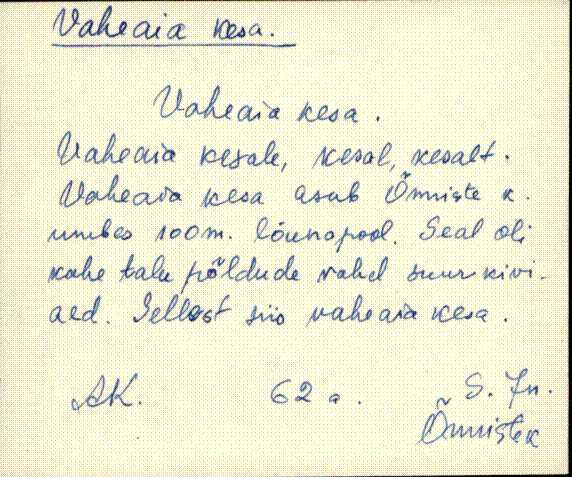 Vaheaia kesa.
Vaheaia kesa.
Vaheaia kesale, kesal, kesalt.
Vaheaia kesa asub Õmniste k.
umbes 100m. lõunapool. Seal oli
kahe talu põldude vahel suur kivi-
aed. Sellest siis vaheaia kesa.
AK. 62 a. S.
Õmniste k